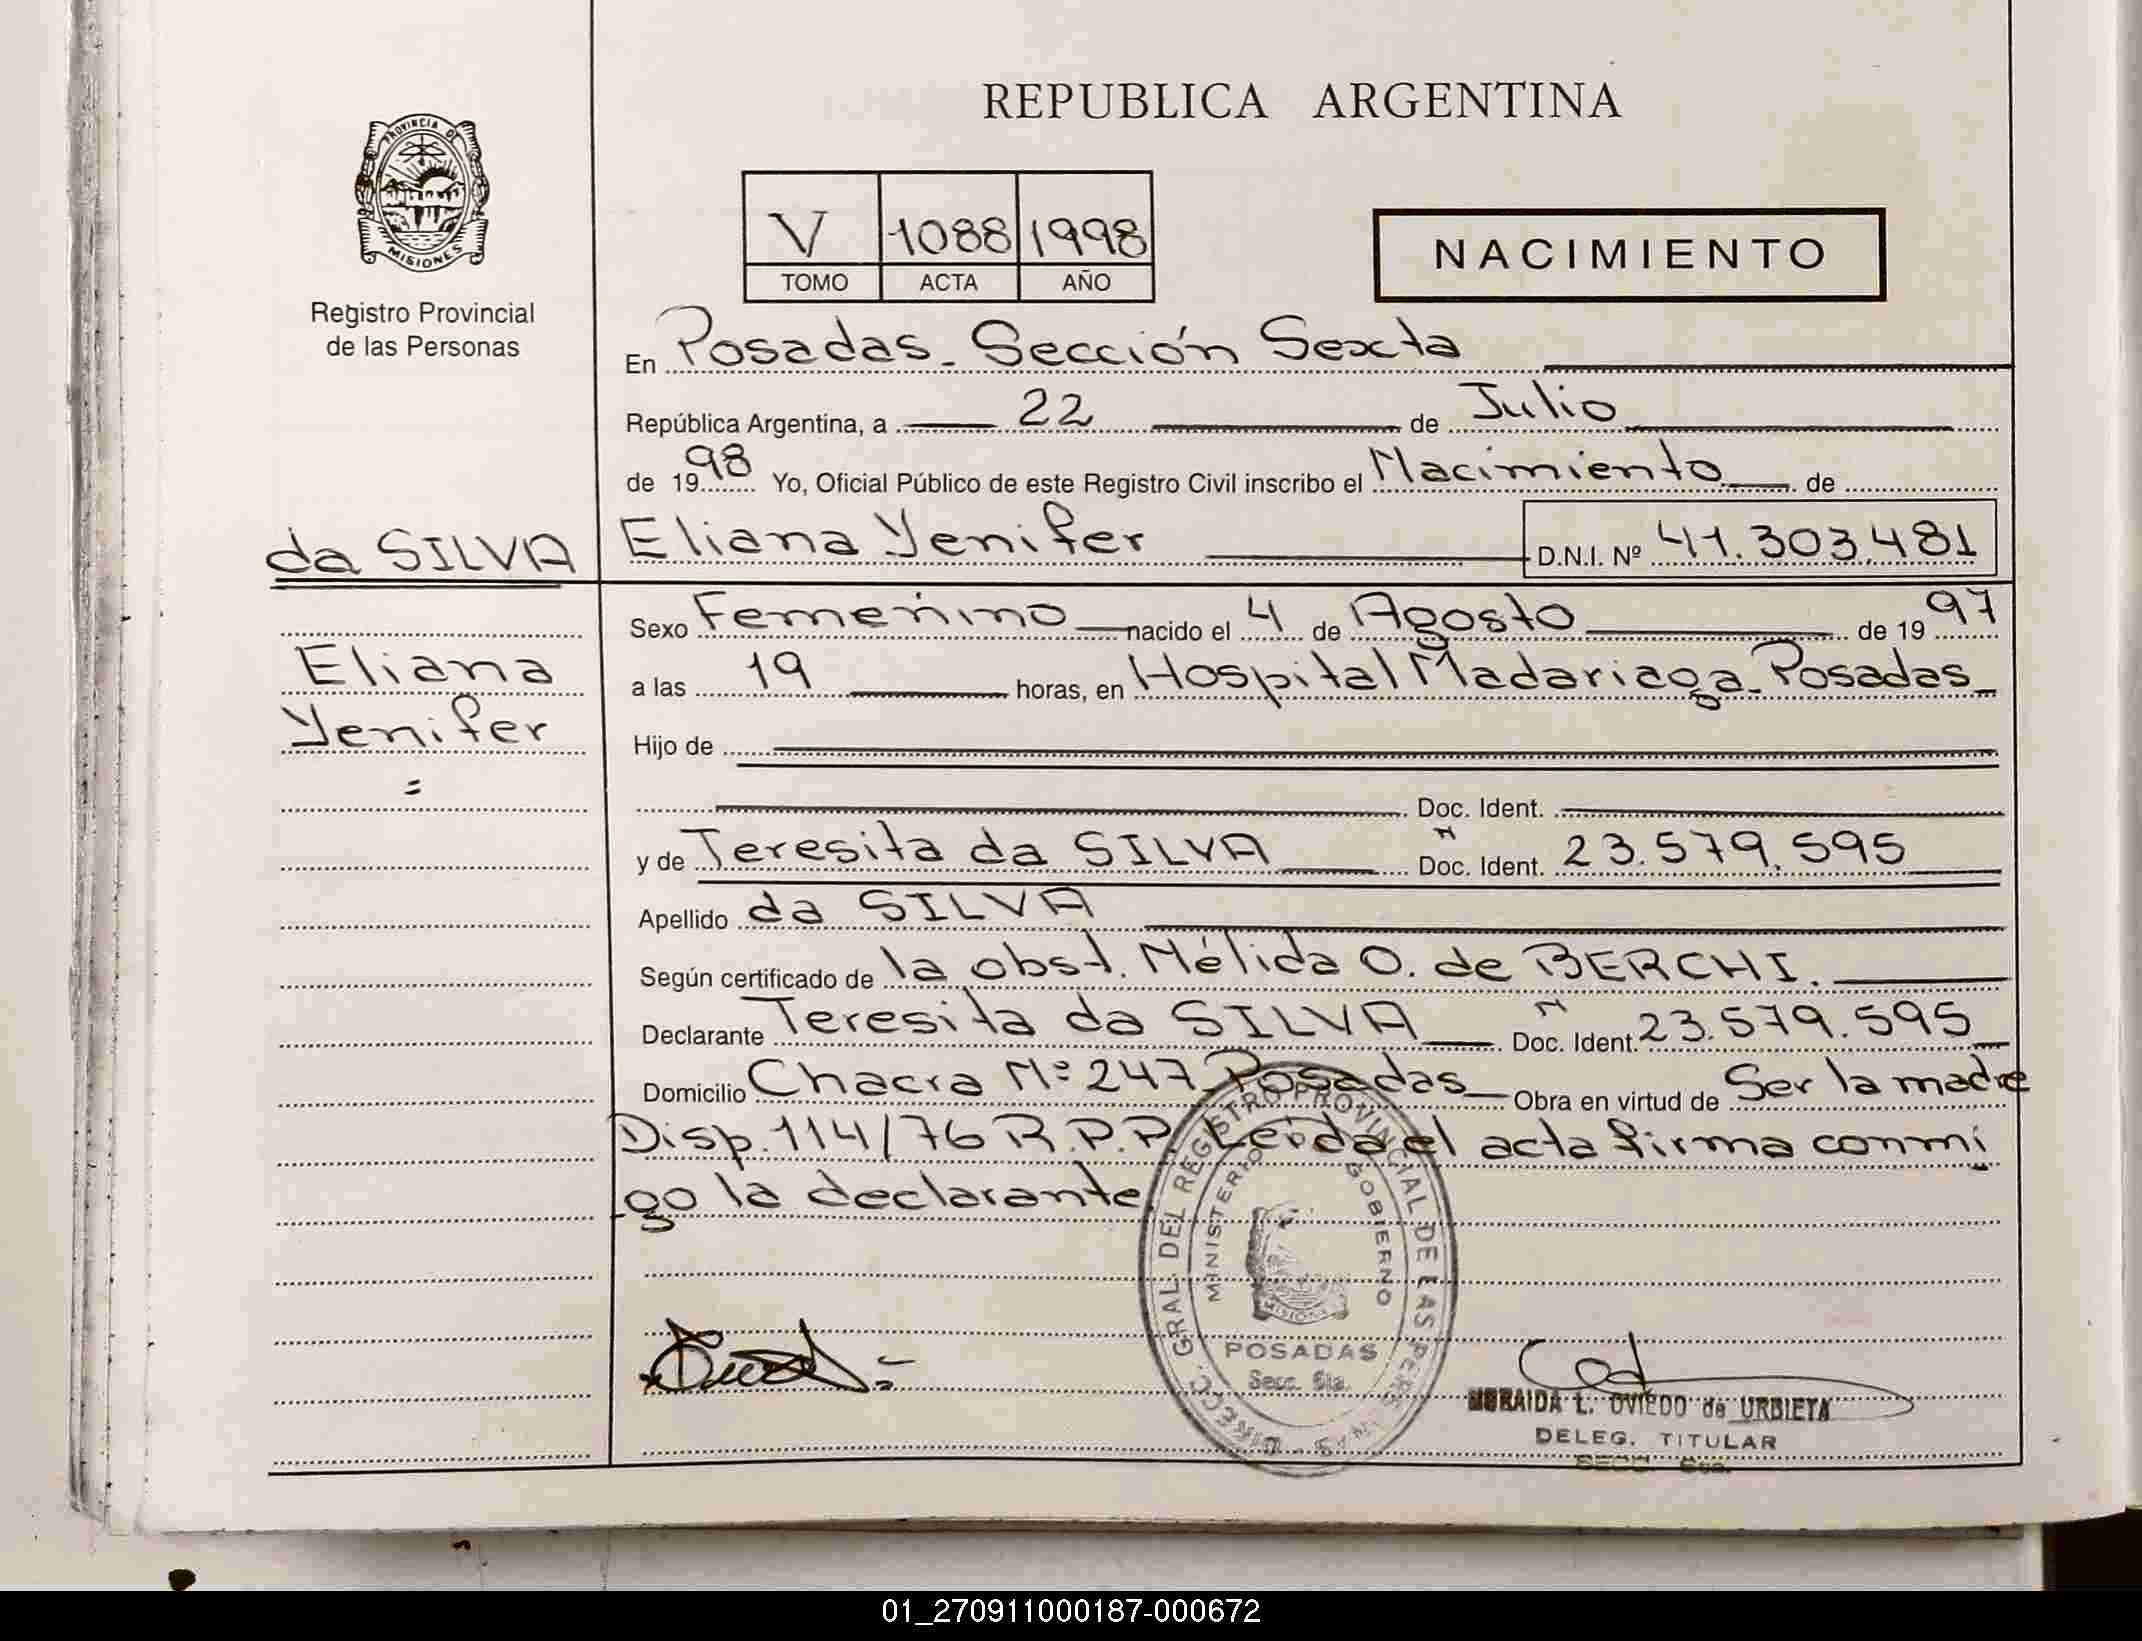 REPUBLICA ARGENTINA
PROVINCIA DE
MISIONES
Registro Provincial
de las Personas
V 1088 1998
TOMO ACTA AÑO
NACIMIENTO
En Posadas - Sección Sexta
República Argentina, a 22 de Julio
de 1998 Yo, Oficial Público de este Registro Civil inscribo el Nacimiento de
da SILVA
Eliana Yenifer D.N.I. Nº 41.303.481
Sexo Femenino nacido el 4 de Agosto de 1997
Eliana
Yenifer
a las 19 horas, en Hospital Madariaga - Posadas
Hijo de
Doc. Ident.
y de Teresita da SILVA Doc. Ident. N 23.579.595
Apellido da SILVA
Según certificado de la obst. Nélida O. de BERCHI.
Declarante Teresita da SILVA Doc. Ident. N 23.579.595
Domicilio Chacra Nº 247 - Posadas Obra en virtud de Ser la madre
Disp. 114/76 R.P.P. Leída el acta firma conmi
go la declarante
DIRECC. GRAL. DEL REGISTRO PROVINCIAL DE LAS PERSONAS
MINISTERIO GOBIERNO
MISIONES
POSADAS
Secc. 6ta.
L. OVIEDO de URBIETA
DELEG. TITULAR
SECC. 6ta.
01_270911000187-000672